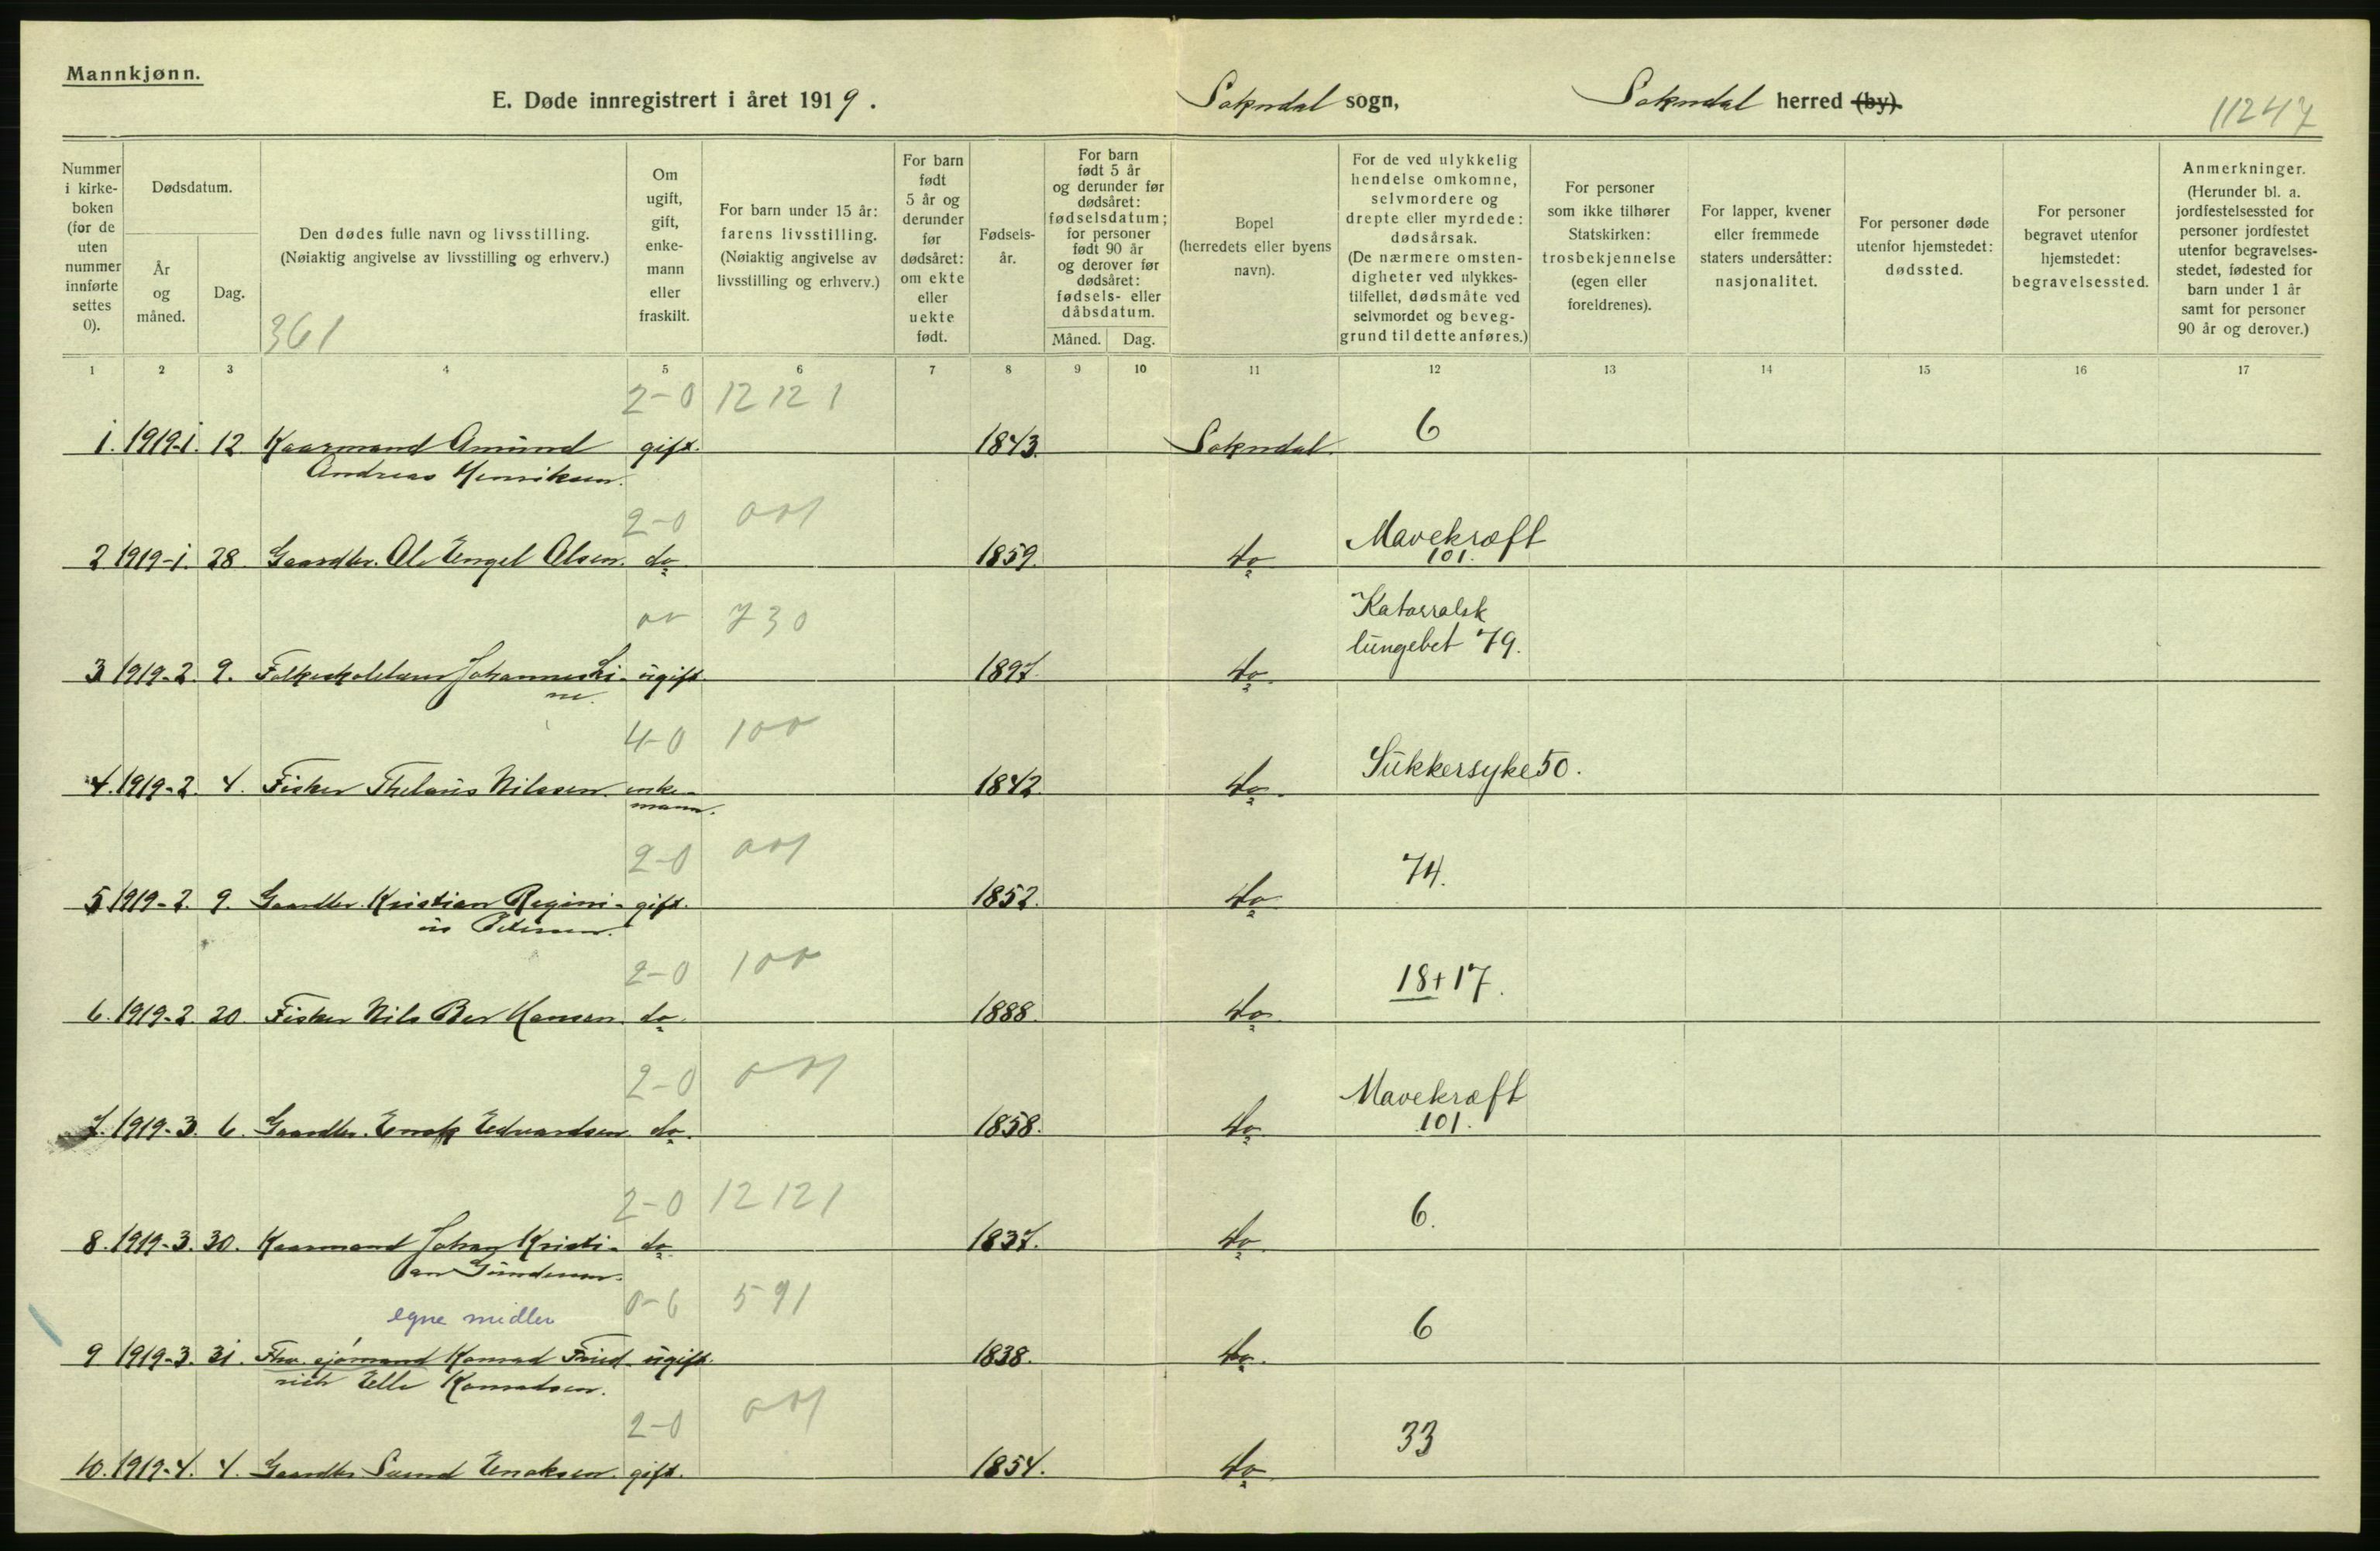 Mannkjønn.
E. Døde innregistrert i året 1919. Sokndal sogn, Sokndal herred (by).
11247
Nummer i kirke- boken (for de uten nummer innførte settes 0).
Dødsdatum.
År og måned.
Dag.
Den dødes fulle navn og livsstilling.
(Nøiaktig angivelse av livsstilling og erhverv.)
361
Om ugift, gift, enke- mann eller fraskilt.
For barn under 15 år: farens livsstilling.
(Nøiaktig angivelse av livsstilling og erhverv.)
For barn født 5 år og derunder før dødsåret: om ekte eller uekte født.
Fødsels- år.
For barn født 5 år og derunder før dødsåret: fødselsdatum; for personer født 90 år og derover før dødsåret: fødsels- eller dåbsdatum.
Måned. Dag.
Bopel (herredets eller byens navn).
For de ved ulykkelig hendelse omkomne, selvmordere og drepte eller myrdede: dødsårsak.
(De nærmere omsten- digheter ved ulykkes- tilfellet, dødsmåte ved selvmordet og beveg- grund til dette anføres.)
For personer som ikke tilhører Statskirken: trosbekjennelse (egen eller foreldrenes).
For lapper, kvener eller fremmede staters undersåtter: nasjonalitet.
For personer døde utenfor hjemstedet: dødssted.
For personer begravet utenfor hjemstedet: begravelsessted.
Anmerkninger.
(Herunder bl. a. jordfestelsessted for personer jordfestet utenfor begravelses- stedet, fødested for barn under 1 år samt for personer 90 år og derover.)
1 2 3 4 5 6 7 8 9 10 11 12 13 14 15 16 17
2-0 12 12 1
1. 1919-1. 12. Kaarmand Amund gift. 1843. Sokndal. 6
Andreas Henriksen.
2-0 001
2 1919-1. 28. Gaardbr. Ole Engel Olsen. do 1859. do Mavekræft
101.
00 730
3 1919-2. 9. Folkeskolelærer Johannes Li- ugift. 1897. do. Katarralsk
lungebet 79.
ne.
4-0 100
4. 1919-2. 4. Fisker Nilssen. enke- 1842. do. Sukkersyke 50.
mann.
2-0 001
5 1919-2. 9. Gaardbr. Kristian Regini- gift. 1852. do 74.
us Petersen.
2-0 100
6. 1919-2. 20. Fisker Nils Ber Hansen. do. 1888. do. 18+17.
2-0 001
7. 1919-3. 6. Gaardbr. Enok Edvardsen. do. 1858. do. Mavekræft
101.
2-0 12 12 1
8. 1919-3. 30. Kaarmand Johan Kristi- do 1837. do. 6.
an Gundersen.
egne midler 0-6 591
9 1919-3. 31. Fhv. sjømand Konrad Fried- ugift. 1838. do. 6
rich Konradsen.
2-0 001
10. 1919-4. 4. Gaardbr. Enoksen. gift. 1854. do 33